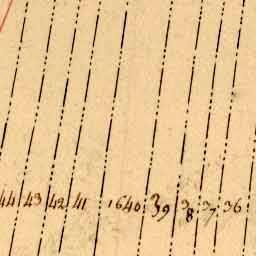 44 43 42 41 1640 39 38 37 36